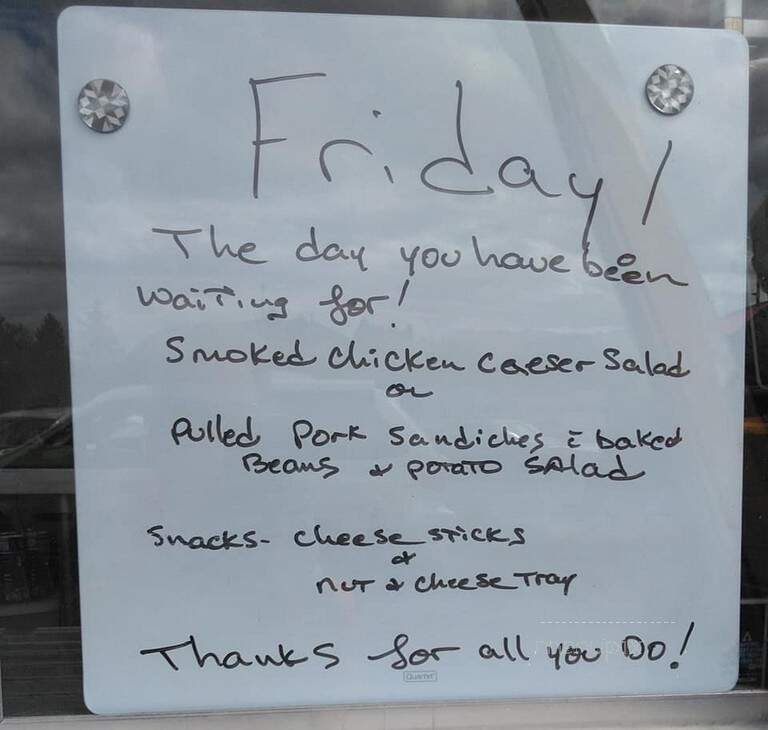 Friday!
The day you have been
waiting for!
Smoked chicken caeser Salad
or
Pulled Pork Sandiches c̄ baked
Beans & potato SAlad
Snacks- cheese sticks
&
nut & cheese Tray
Thanks for all you Do!
Quartet